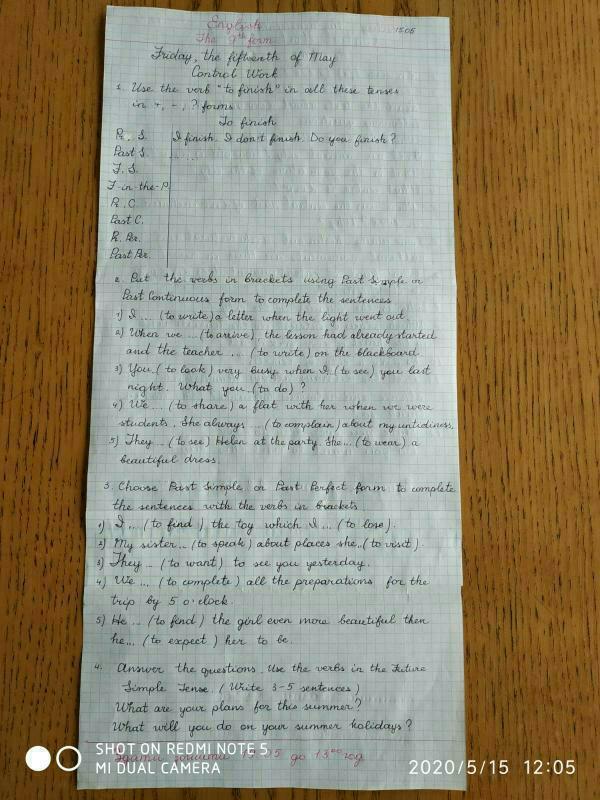 English 15.05
The 9th form
Friday, the fifteenth of May
Control Work
1. Use the verb "to finish" in all these tenses
in +, -, ? forms
To finish
Pr. S. I finish. I don't finish. Do you finish?
Past S. .....
F. S.
F-in-the-P.
Pr. C.
Past C.
Pr. Per.
Past Per.
2. Put the verbs in brackets using Past Simple or
Past Continuous form to complete the sentences
1) I ... (to write) a letter when the light went out.
2) When we ... (to arrive), the lesson had already started
and the teacher ... (to write) on the blackboard.
3) You (to look) very busy when I (to see) you last
night. What you (to do)?
4) We ... (to share) a flat with her when we were
students. She always ... (to complain) about my untidiness.
5) They ... (to see) Helen at the party. She ... (to wear) a
beautiful dress.
3. Choose Past Simple or Past Perfect form to complete
the sentences with the verbs in brackets
1) I ... (to find) the toy which I ... (to lose).
2) My sister ... (to speak) about places she ... (to visit).
3) They ... (to want) to see you yesterday.
4) We ... (to complete) all the preparations for the
trip by 5 o'clock.
5) He ... (to find) the girl even more beautiful then
he ... (to expect) her to be.
4. Answer the questions. Use the verbs in the Future
Simple Tense. (Write 3-5 sentences)
What are your plans for this summer?
What will you do on your summer holidays?
SHOT ON REDMI NOTE 5
MI DUAL CAMERA
2020/5/15 12:05